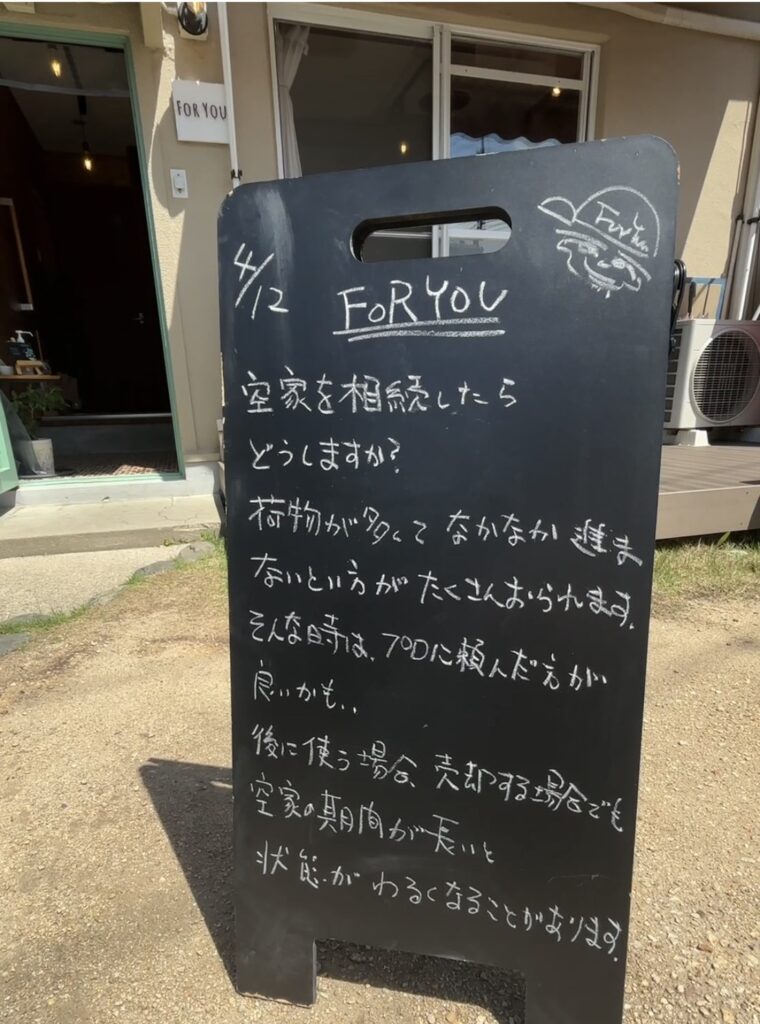 FOR YOU
For You
4/12
FOR YOU
空家を相続したら
どうしますか?
荷物が多くて なかなか 進ま
ないという方が たくさんおられます。
そんな時は、プロに頼んだ方が
良いかも、、
後に使う場合、売却する場合でも
空家の期間が長いと
状態が わるくなることがあります。